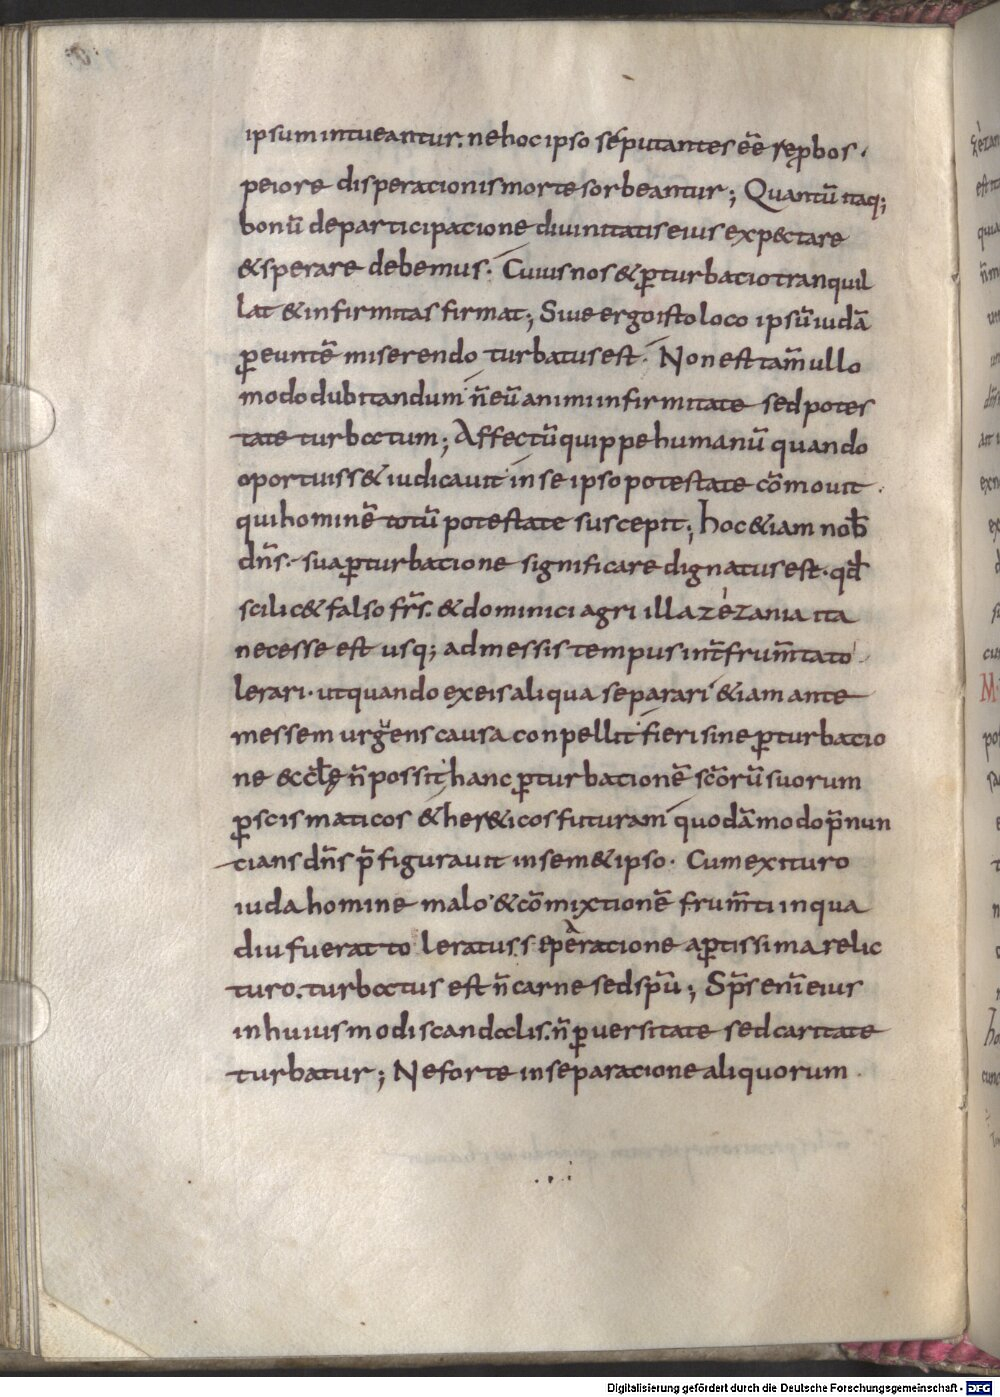 ipsum intueantur. ne hoc ipso se putantes eē rep̱bos.
peiore disperacionis morte sorbeantur; Quantū itaq;
bonū de participacione diuinitatis eius expectare
& sperare debemus. Cuius nos & ꝑturbacio tranquil
lat & infirmitas firmat; Siue ergo isto loco ipsū iudā
ꝑeuntē miserendo turbatus est. Non est tam̄ ullo
modo dubitandum n̄ eū animi infirmitate sed potes
tate turbatum; Affectū quippe humanū quando
oportuiss& iudicauit in se ipso potestate cōmouit.
qui hominē totū potestate suscepit; hoc &iam nob̄
dn̄s. sua ꝑturbacione significare dignatus est. qd̄
scilic& falso fr̄s. & dominici agri illa zezania ita
necesse est usq; ad messis tempus int̄ frum̄ta to
lerari. ut quando ex eis aliqua separari &iam ante
messem urgens causa conpellit fieri sine ꝑturbacio
ne ecclę n̄ possit; hanc ꝑturbacionē sc̄orū suorum
ꝑ scismaticos & her&icos futuram quodāmodo p̄nun
cians dn̄s p̄figurauit in sem&ipso. Cum exituro
iuda homine malo & cōmixtionē frum̄ti in qua
diu fuerat toleratus seperacione aꝑtissima relic
turo. turbatus est n̄ carne sed sp̄u; Sp̄s enī eius
in huiusmodi scandalis. n̄ ꝑuersitate sed caritate
turbatur; Ne forte in separacione aliquorum
Digitalisierung gefördert durch die Deutsche Forschungsgemeinschaft - DFG